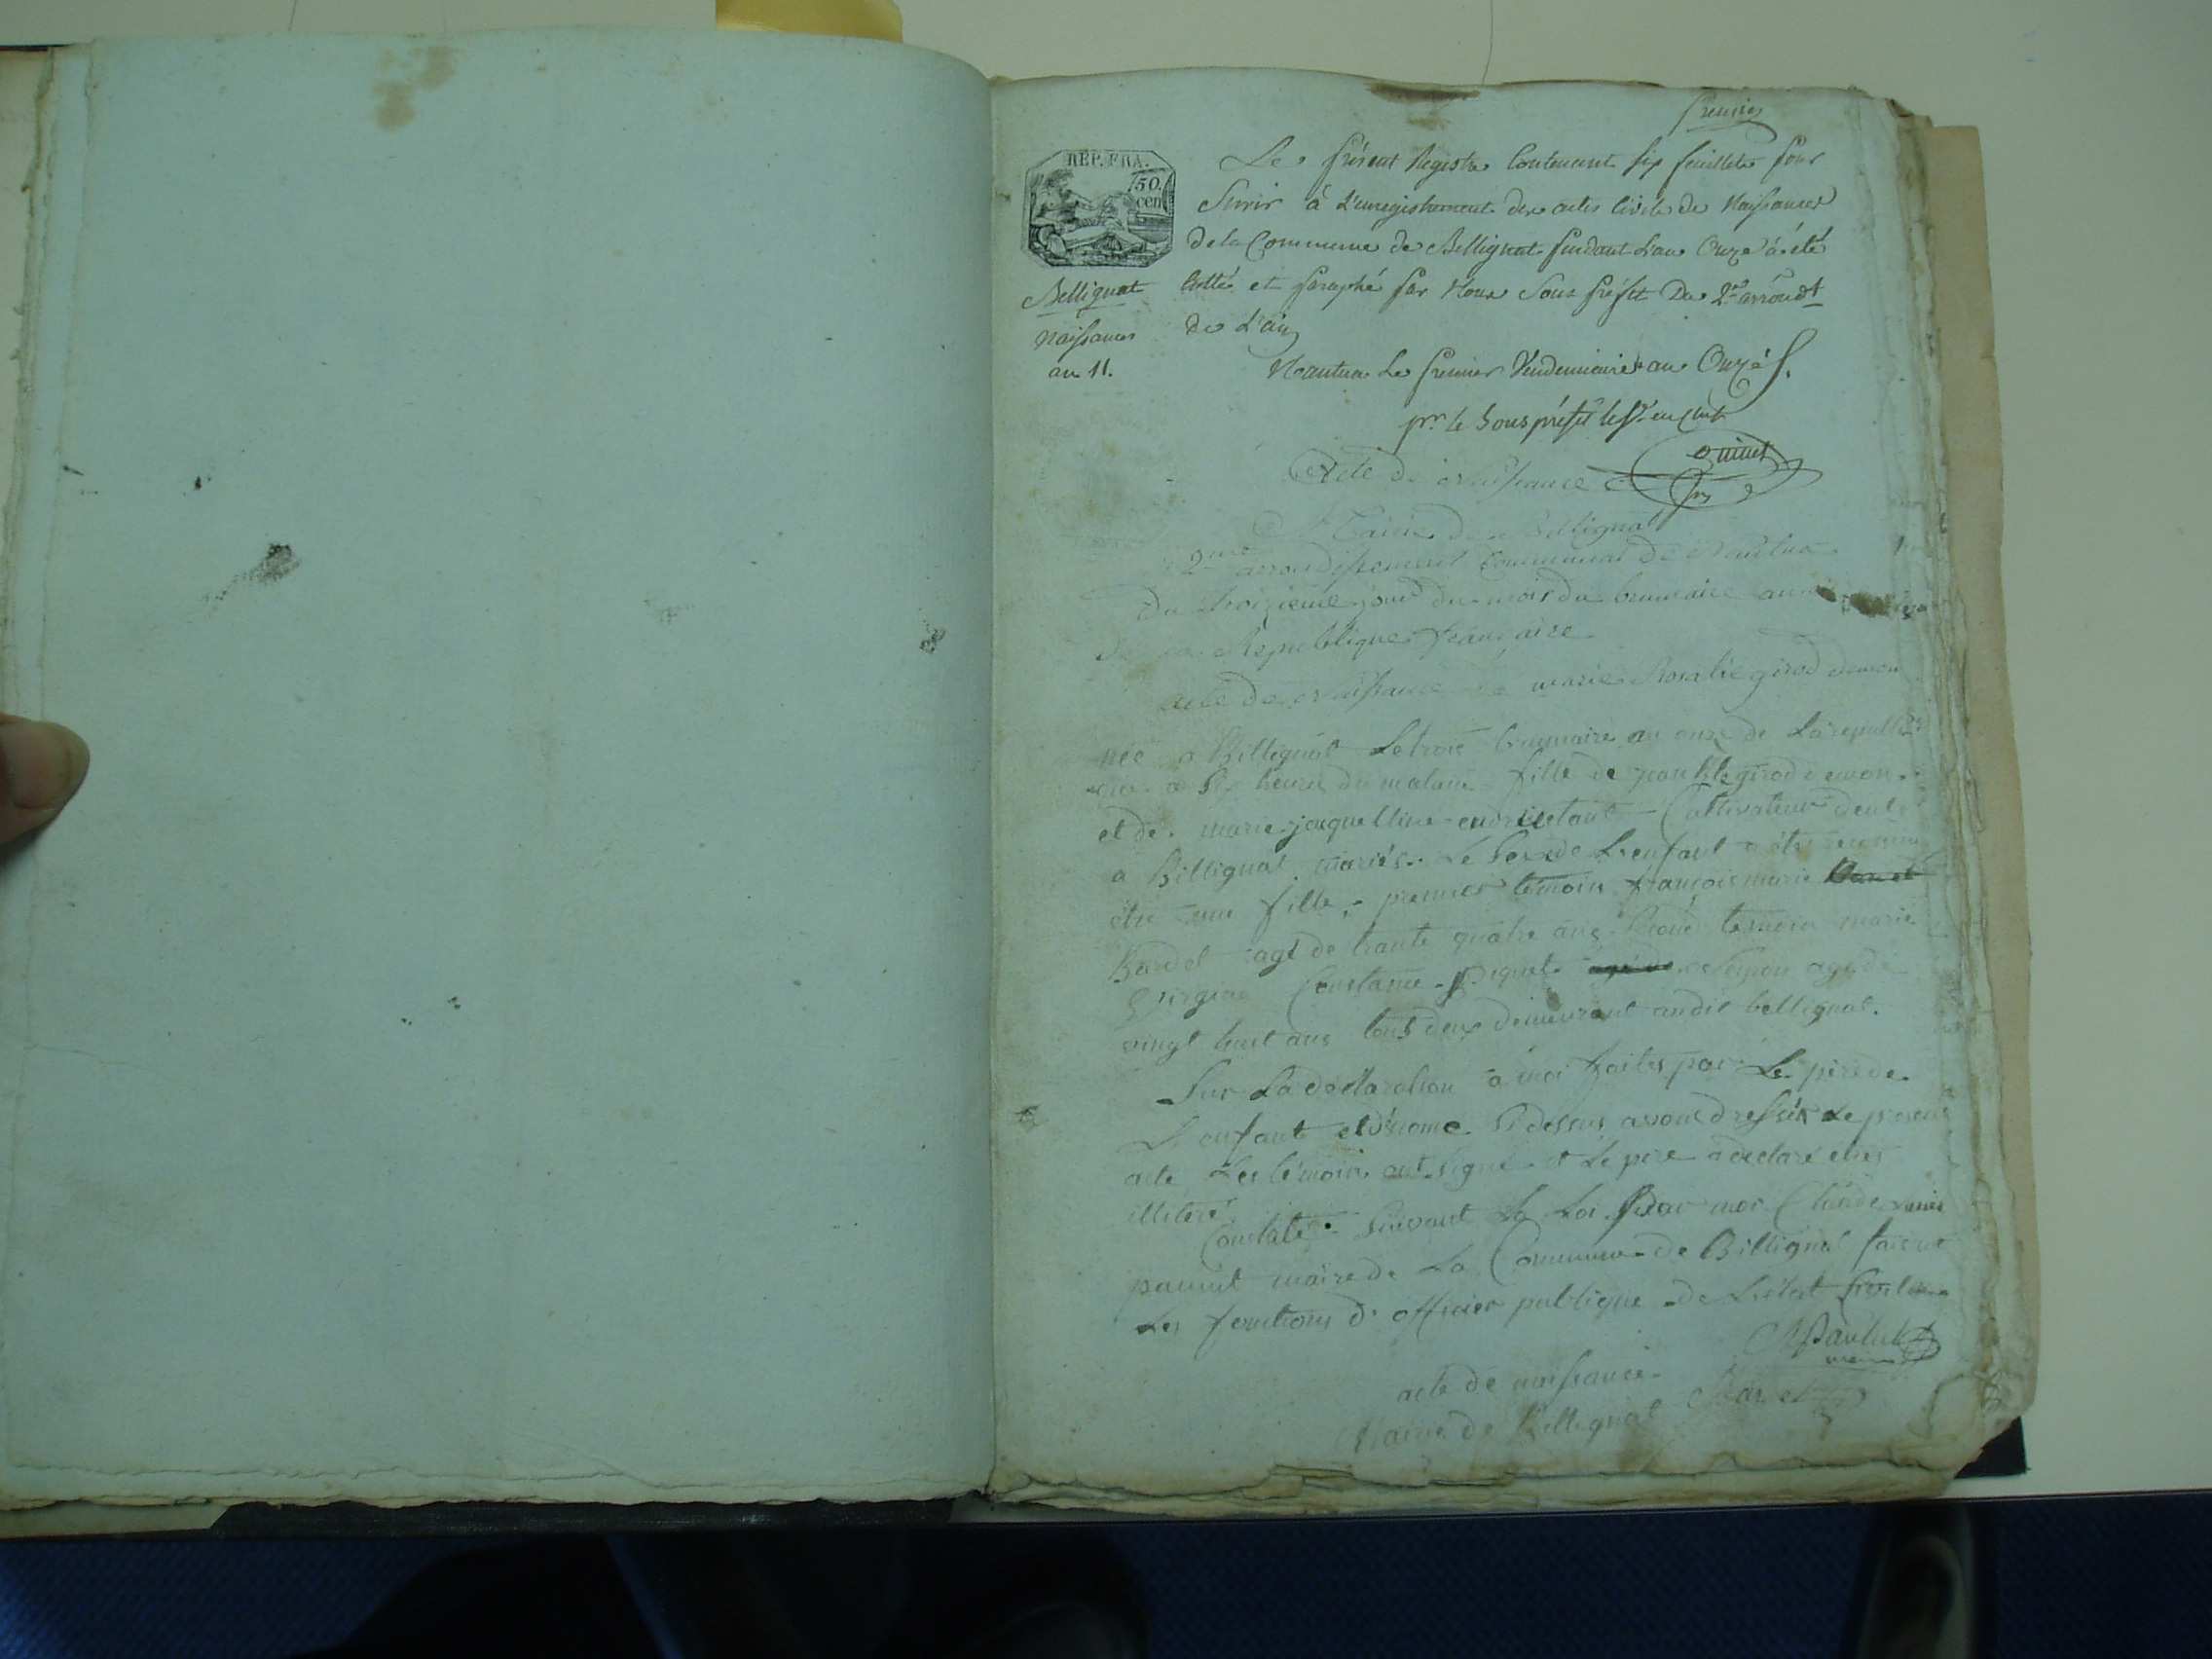 premier
REP. FRA.
50.
cen
Le présent Registre Contenant six feuillets pour
Servir à L'enregistrement des actes Civils de Naissances
de la Commune de Bellignat pendant L'an Onze à été
Cotté et paraphé par Nous Sous préfet Du 2e arrondt
de L'ain
Bellignat
Naissances
an 11.
Nantua Le premier Vendemiaire an Onze
pr. le Sous préfet
Acte de Naissance
Mairie de Bellignat
2me arrondissement Communal de Nantua
Du Troizieme jour du mois du brumaire an
de la Republique française
acte de Naissance de marie Rosalie girod
née a Billignat Le trois brumaire an onze de La republi
que a Six heures du matain fille de girod
et de marie jacquelline Cultivateur
a Billignat mariés. Le Sexe de L'enfant a été reconnu
être une fille, premier temoin françois marie
Bandet agé de trante quatre ans Second temoin marie
Constance agé de
vingt huit ans tous deux demeurant audit bellignat.
Sur La declaration a moi faites par Le père de
L'enfant Si dessus avons dressér Le present
acte Les temoins ont signé et Le pere a declaré etre
illiteré
Constaté Suivant La Loi par moi Claude
maire de La Commune de Billignat faisant
Les fonctions d'officier publique de L'état Civil
maire
acte de naissance
Mairie de Bellignat